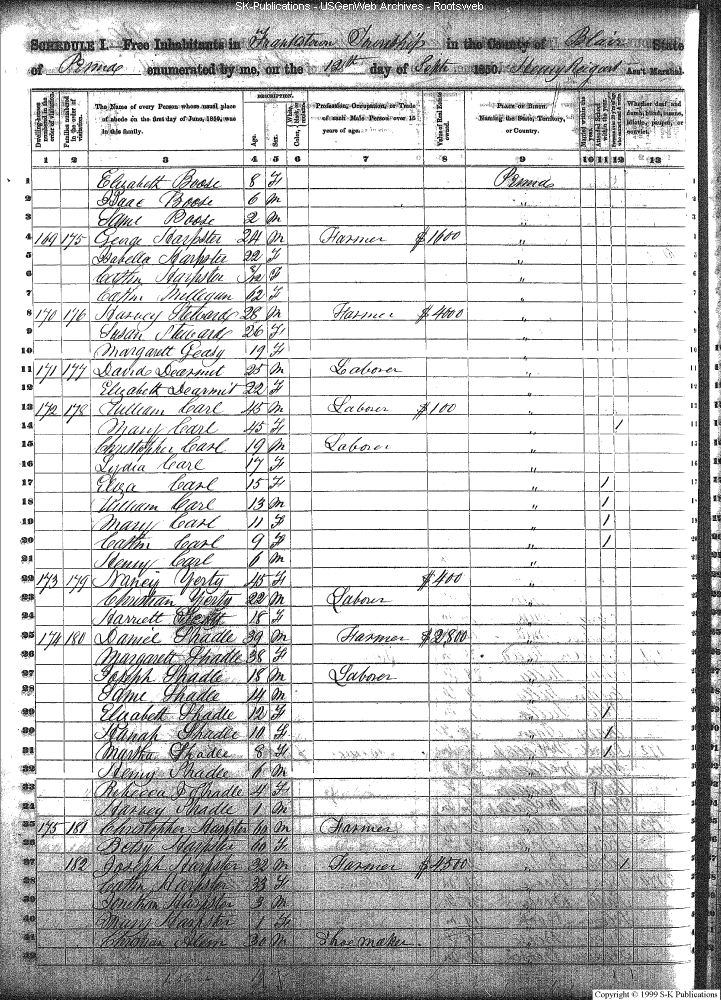 SK-Publications - USGenWeb Archives - Rootsweb
SCHEDULE I. Free Inhabitants in Frankstown Township in the County of Blair State
of Penna enumerated by me, on the 12th day of Sept 1850. Henry Reigart Ass't Marshal.
Dwelling-houses numbered in the order of visitation.
Families numbered in the order of visitation.
The Name of every Person whose usual place of abode on the first day of June, 1850, was in this family.
DESCRIPTION.
Age.
Sex.
White, black, or mulatto.
Color,
Profession, Occupation, or Trade of each Male Person over 15 years of age.
Value of Real Estate owned.
PLACE OF BIRTH. Naming the State, Territory, or Country.
Married within the year.
Attended School within the year.
Whether deaf and dumb, blind, insane, idiotic, pauper, or convict.
1 2 3 4 5 6 7 8 9 10 11 12 13
1 Elizabeth Boose 8 F Penna
2 Isaac Boose 6 M "
3 Boose 2 M "
4 169 175 George Harpster 24 M Farmer $1600 "
5 Isabella Harpster 22 F "
6 Harpster F "
7 Milligan 62 F "
8 170 176 Harvey Steward 28 M Farmer $400 "
9 Susan Steward 26 F "
10 Margarett Geasy 19 F "
11 171 177 David Dearmit 25 M Laborer "
12 Elizabeth Dearmit 22 F "
13 172 178 William Carl 45 M Laborer $100 "
14 Mary Carl 45 F " 1
15 Christopher Carl 19 M Laborer "
16 Lydia Carl 17 F "
17 Eliza Carl 15 F " 1
18 William Carl 13 M " 1
19 Mary Carl 11 F " 1
20 Carl 9 F " 1
21 Henry Carl 6 M "
22 173 179 Nancy Yerty 45 F $400 "
23 Christian Yerty 22 M Laborer "
24 Harriett 18 F "
25 174 180 Daniel Shadle 39 M Farmer $2,800 "
26 Margarett Shadle 38 F "
27 Joseph Shadle 18 M Laborer "
28 Shadle 14 M "
29 Elizabeth Shadle 12 F " 1
30 Hanah Shadle 10 F " 1
31 Martha Shadle 8 F " 1
32 Henry Shadle 6 M "
33 Rebecca J Shadle 4 F "
34 Harvey Shadle 1 M "
35 175 181 Christopher Harpster 60 M Farmer "
36 Betsy Harpster 60 F "
37 182 Joseph Harpster 32 M Farmer $4500 " 1
38 Harpster 33 F "
39 Jonathan Harpster 3 M "
40 Mary Harpster 1 F "
41 Christian 30 M Shoe maker "
42
Copyright © 1999 S-K Publications